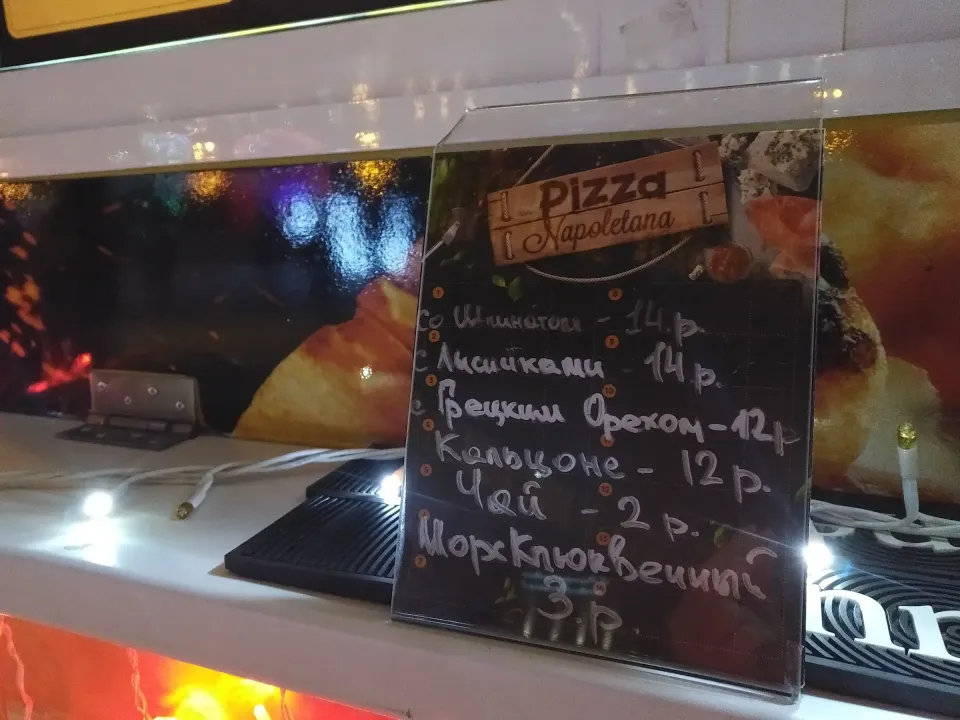 Pizza
Napoletana
Со Шпинатом - 14 р.
с Лисичками - 14 р.
с Грецким Орехом - 12 р
Кальцоне - 12 р.
Чай - 2 р.
Морс Клюквенный
3 р.